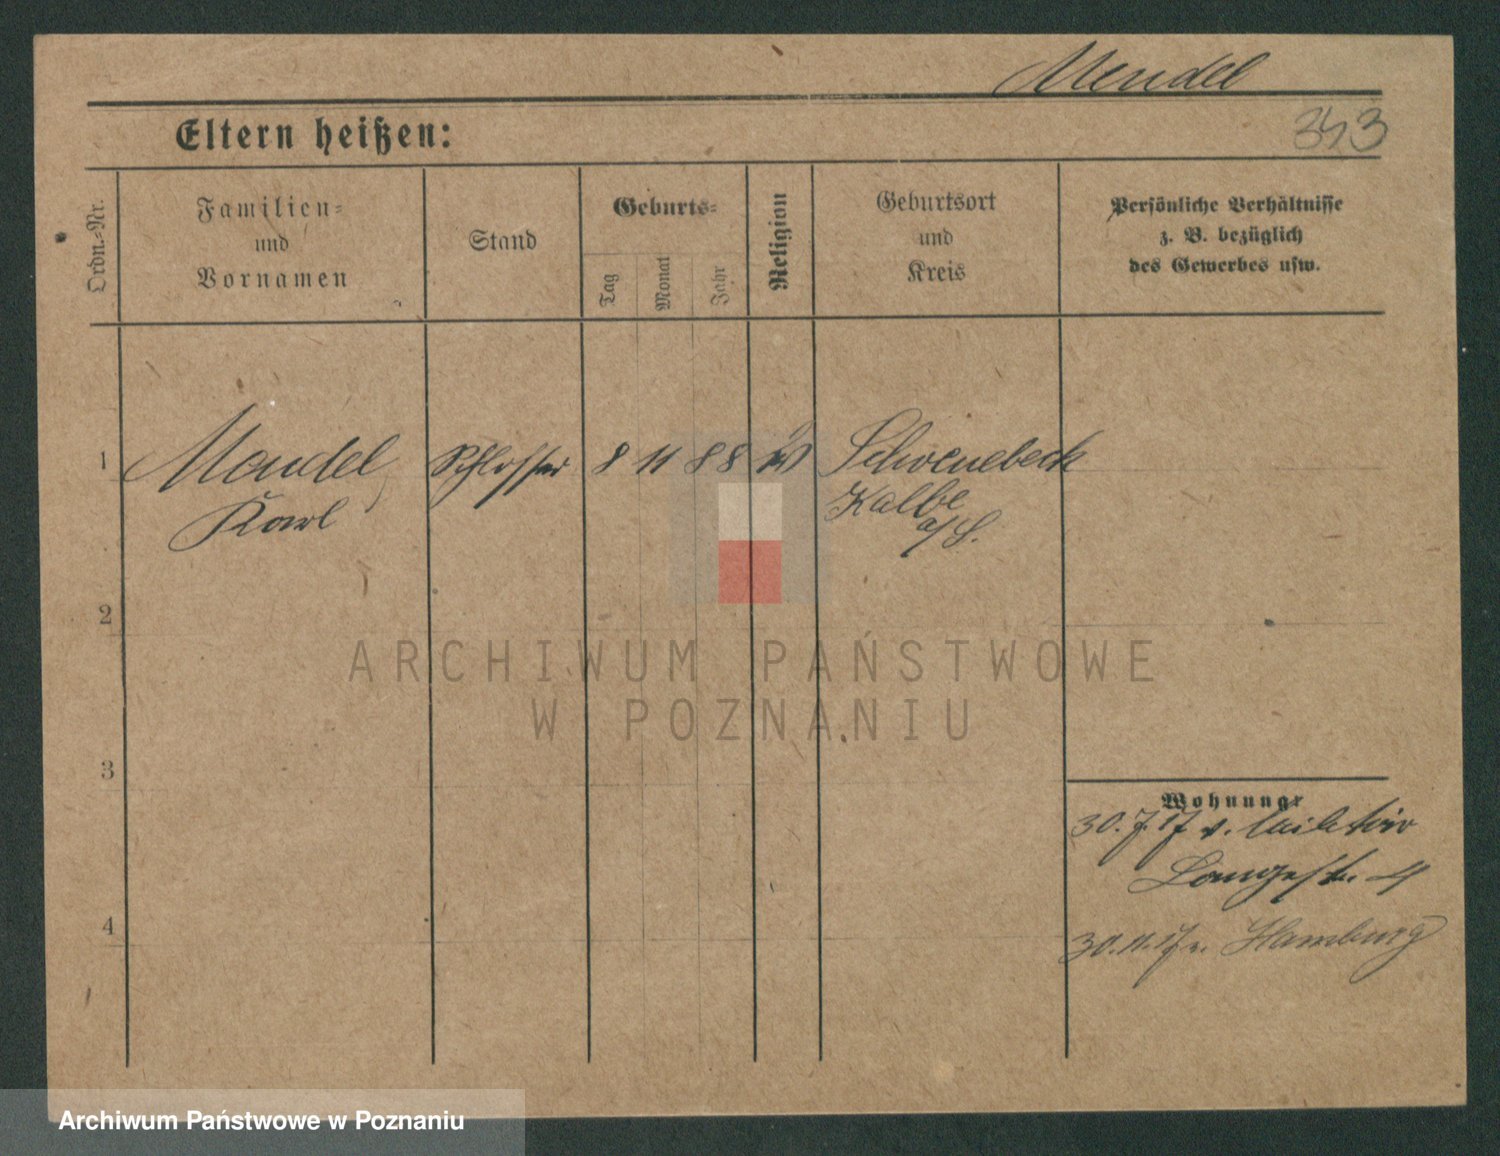 Mendel
Eltern heißen:
343
Ordn.-Nr.
Familien-
und
Vornamen
Stand
Geburts-
Tag
Monat
Jahr
Religion
Geburtsort
und
Kreis
Persönliche Verhältnisse
z. B. bezüglich
des Gewerbes usw.
1
Mendel
Karl
Schlosser
8
11
88
Schoenebeck
Kalbe
a/S.
2
3
4
Wohnung
30.7.17 v. Militär
Langestr. 4
30.11.17 n. Hamburg
ARCHIWUM PAŃSTWOWE
W POZNANIU
Archiwum Państwowe w Poznaniu